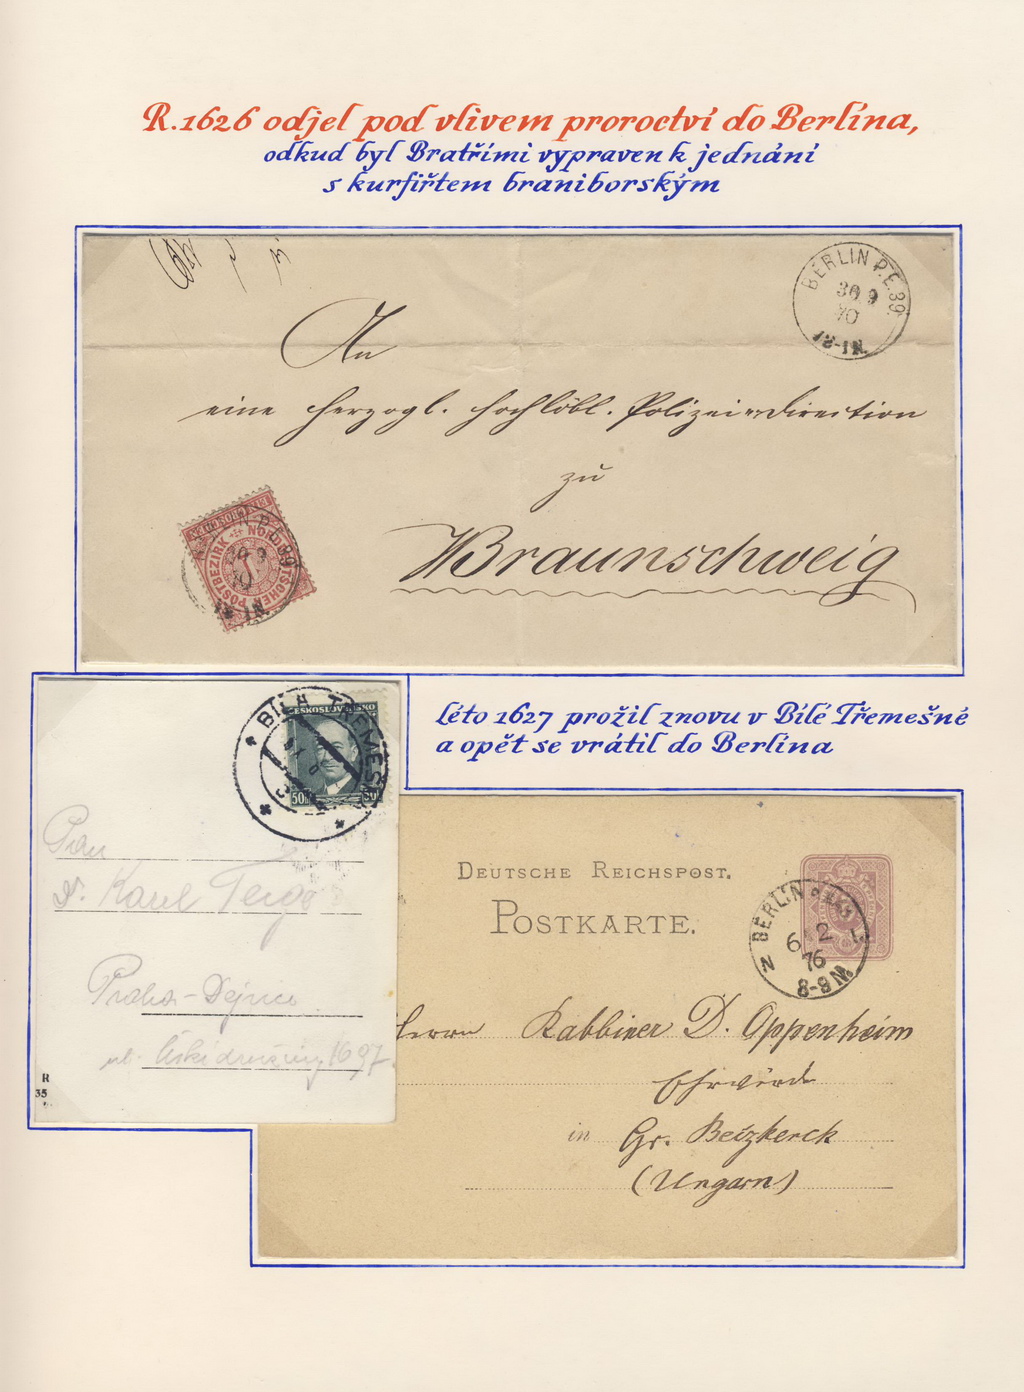 R. 1626 odjel pod vlivem proroctví do Berlína,
odkud byl Bratřími vypraven k jednání
s kurfiřtem braniborským
BERLIN P.E. 39.
30 9
70
12-1N.
An
eine herzogl. hochlöbl. Polizei-Direction
zu
Braunschweig
NORDDEUTSCHER POSTBEZIRK
1
léto 1627 prožil znovu v Bílé Třemešné
a opět se vrátil do Berlína
BÍLÁ TŘEMEŠNÁ
ČESKOSLOVENSKO
50
Pan
Dr. Karel Teige
Praha-Dejvice
ul. 1697
R
35
DEUTSCHE REICHSPOST.
POSTKARTE.
N BERLIN
6 2
76
8-9N.
Herrn Rabbiner D. Oppenheim
Ehrwürde
in Gr. Beczkerek
(Ungarn)